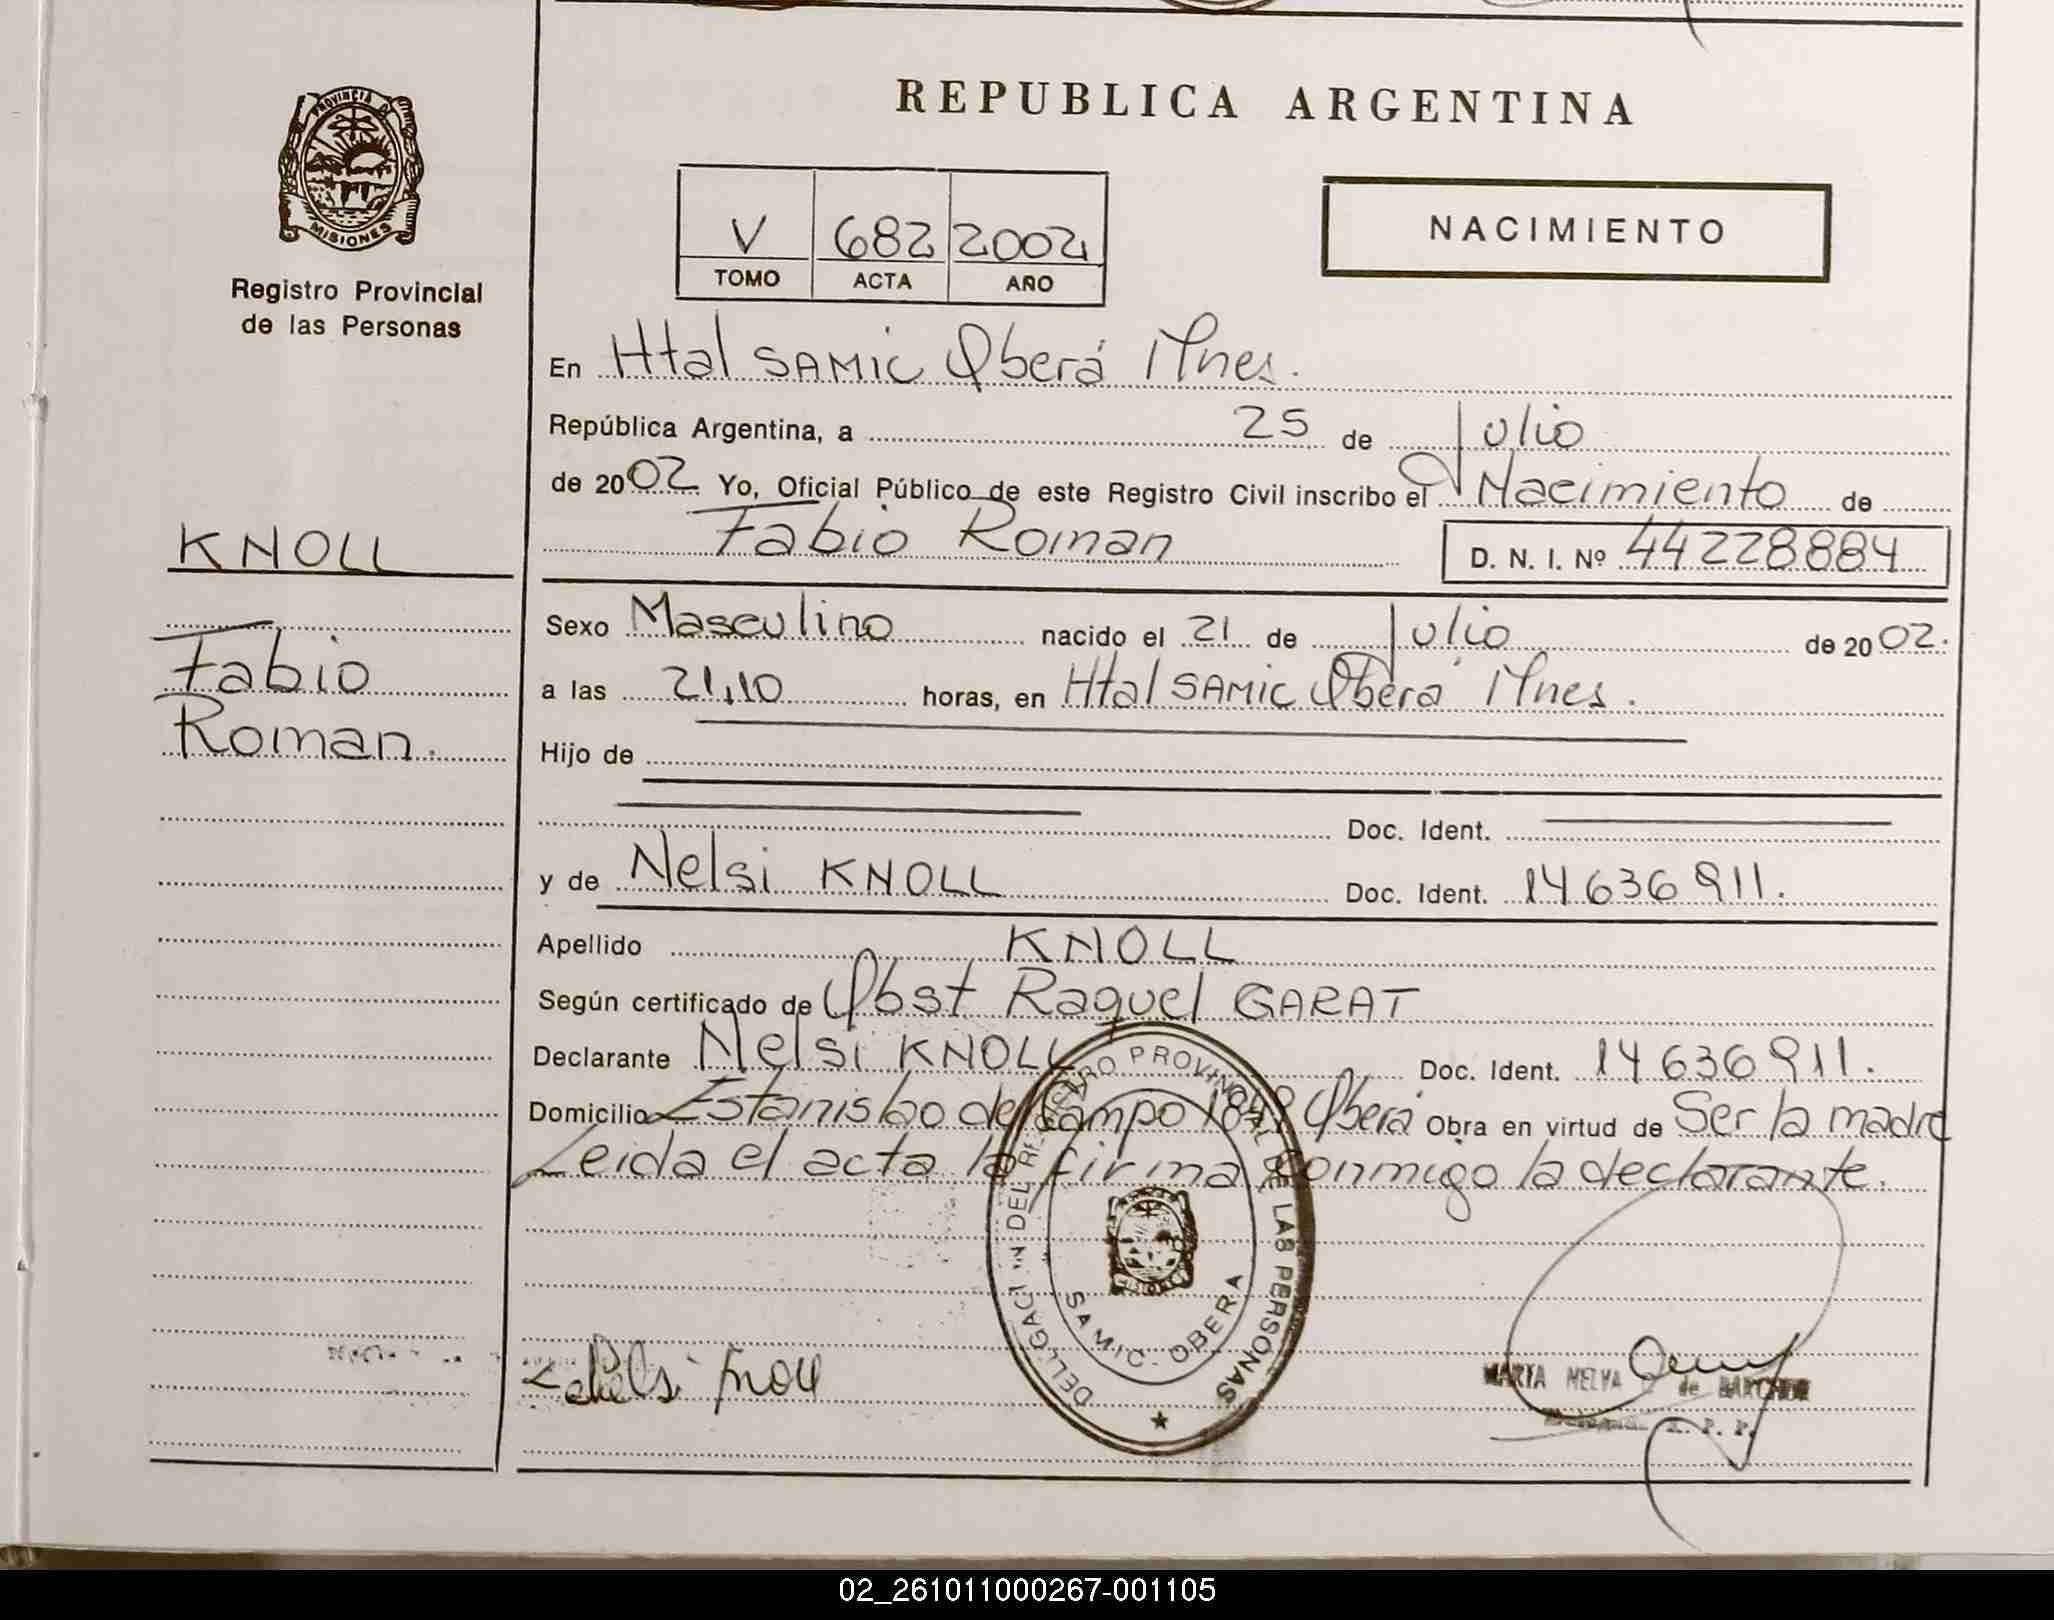 REPUBLICA ARGENTINA
PROVINCIA DE
MISIONES
Registro Provincial
de las Personas
V 682 2002
TOMO ACTA AÑO
NACIMIENTO
En Htal SAMIC Oberá Mnes.
República Argentina, a 25 de Julio
de 2002 Yo, Oficial Público de este Registro Civil inscribo el Nacimiento de
Fabio Roman D. N. I. Nº 44228884
KNOLL
Fabio
Roman.
Sexo Masculino nacido el 21 de Julio de 2002.
a las 21,10 horas, en Htal SAMIC Oberá Mnes.
Hijo de
Doc. Ident.
y de Nelsi KNOLL Doc. Ident. 14636911.
Apellido KNOLL
Según certificado de Obst Raquel GARAT
Declarante Nelsi KNOLL Doc. Ident. 14636911.
Domicilio Estanislao del Campo 1849 Oberá Obra en virtud de Ser la madre
Leida el acta la firma conmigo la declarante.
DELEGACION DEL REGISTRO PROVINCIAL DE LAS PERSONAS
SAMIC - OBERA
Nelsi Knoll
MARIA MELVA de
02_261011000267-001105